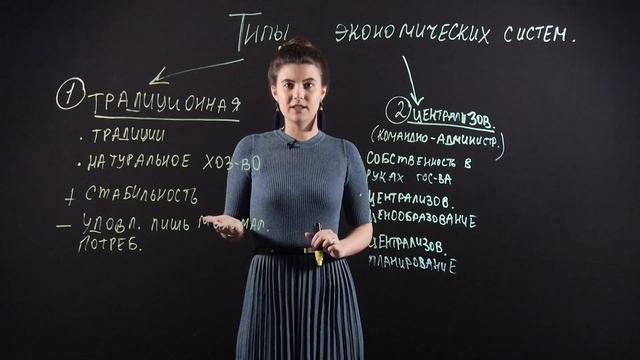 Типы экономических систем.
1 ТРАДИЦИОННАЯ
• ТРАДИЦИИ
• НАТУРАЛЬНОЕ ХОЗ-ВО
+ СТАБИЛЬНОСТЬ
– УДОВЛ. ЛИШЬ
ПОТРЕБ.
2 ЦЕНТРАЛИЗОВ.
(КОМАНДНО-АДМИНИСТР.)
СОБСТВЕННОСТЬ В
РУКАХ ГОС-ВА
ЦЕНТРАЛИЗОВ.
ЦЕНООБРАЗОВАНИЕ
ЦЕНТРАЛИЗОВ.
ПЛАНИРОВАНИЕ